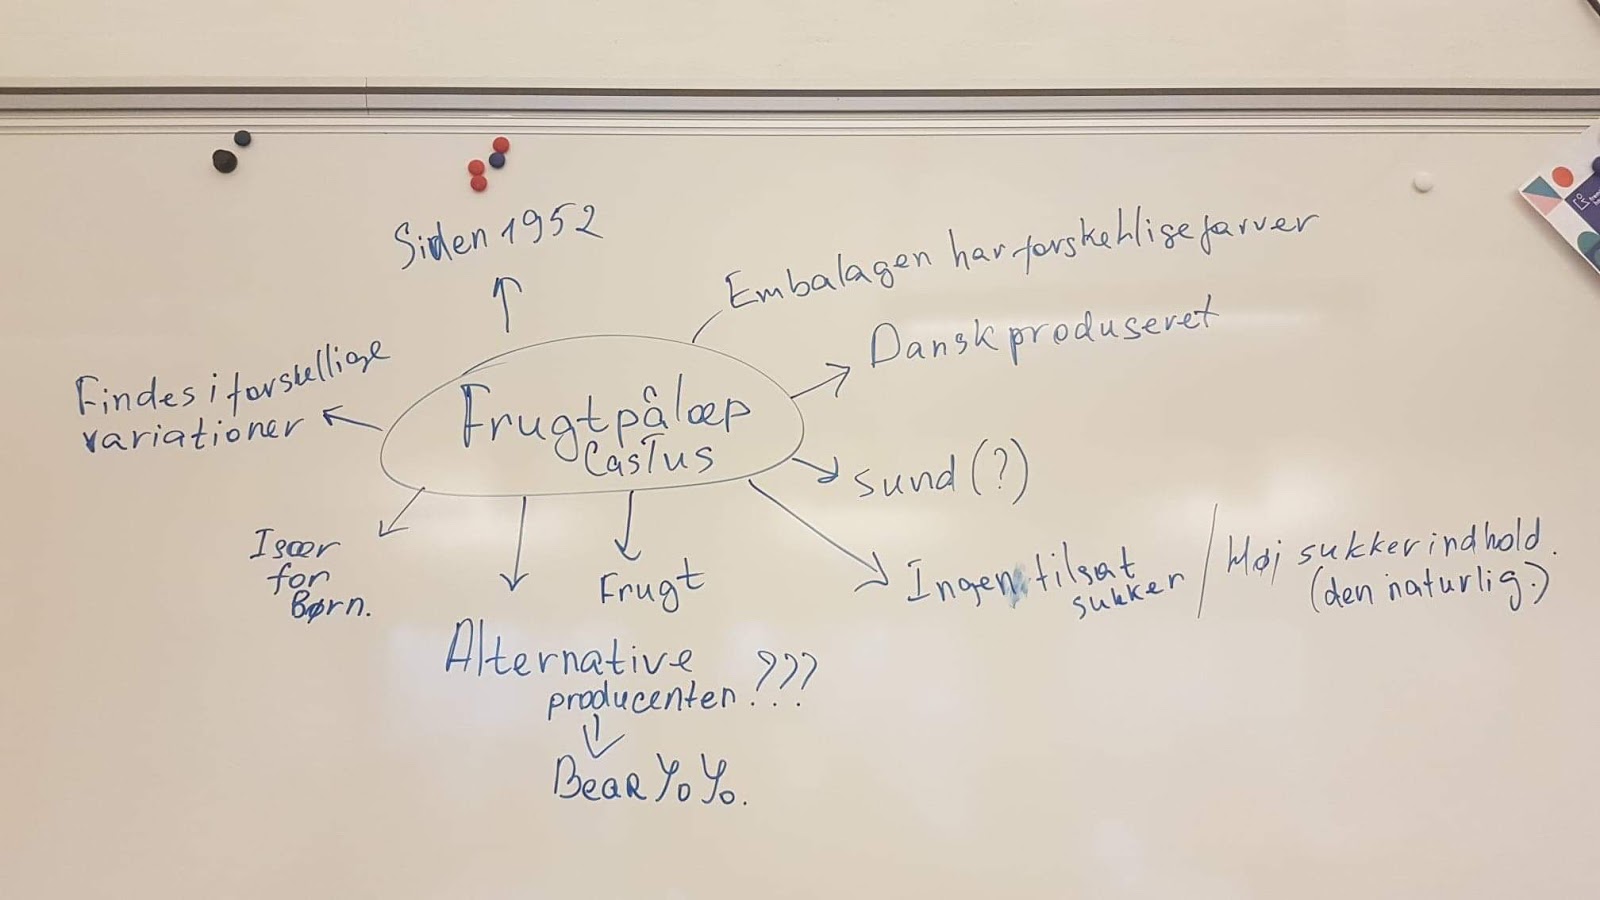 Siden 1952
Embalagen har forskehlige farver
Dansk produseret
Findes i forskellige
variationer
Frugtpålæp
Castus
sund (?)
Især
for
Børn.
Frugt
Ingen tilsat
sukker
/ Høj sukkerindhold.
(den naturlig.)
Alternative
producenten ???
Bear YoYo.